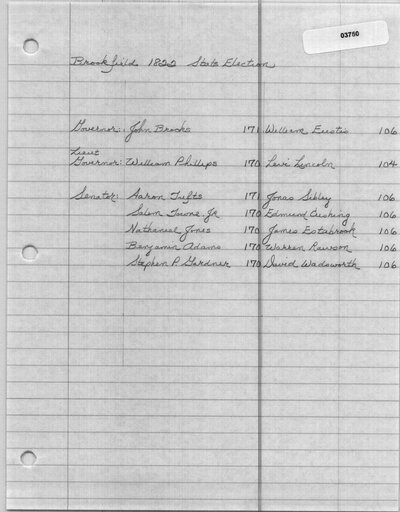 03750
Brookfield 1822 State Election
Governor: John Brooks 171 William Eustis 106
Lieut
Governor: William Phillips 170 Levi Lincoln 104
Senator: Aaron Tufts 171 Jonas Sibley 106
Salem Towne Jr 170 Edmund Cushing 106
Nathaniel Jones 170 James Estabrook 106
Benjamin Adams 170 Warren Rawson 106
Stephen P Gardner 170 David Wadsworth 106